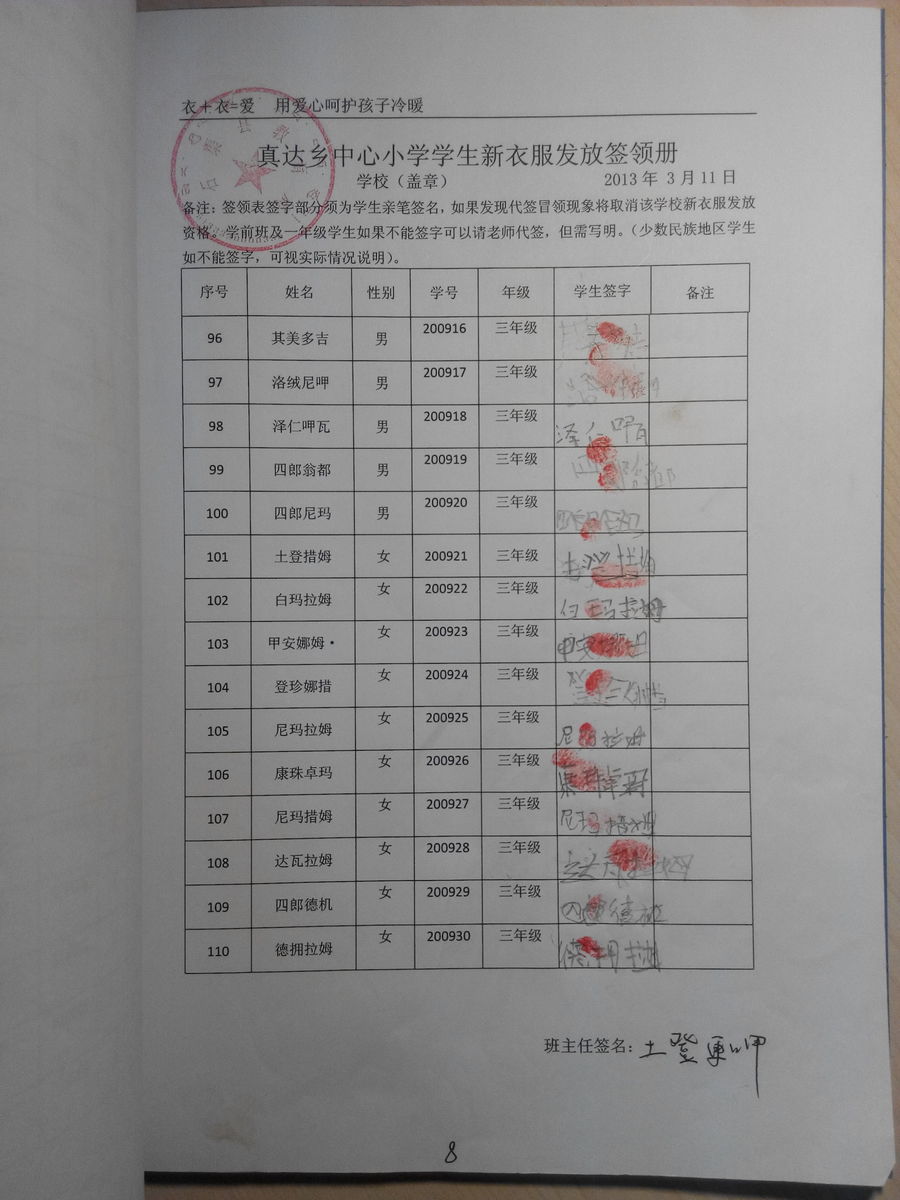 衣＋衣=爱 用爱心呵护孩子冷暖
真达乡中心小学学生新衣服发放签领册
学校（盖章） 2013 年 3 月 11 日
备注：签领表签字部分须为学生亲笔签名，如果发现代签冒领现象将取消该学校新衣服发放
资格。学前班及一年级学生如果不能签字可以请老师代签，但需写明。（少数民族地区学生
如不能签字，可视实际情况说明）。
序号 姓名 性别 学号 年级 学生签字 备注
96 其美多吉 男 200916 三年级
97 洛绒尼呷 男 200917 三年级
98 泽仁呷瓦 男 200918 三年级 泽仁呷
99 四郎翁都 男 200919 三年级 四郎翁都
100 四郎尼玛 男 200920 三年级 四郎尼玛
101 土登措姆 女 200921 三年级
102 白玛拉姆 女 200922 三年级 白玛拉姆
103 甲安娜姆· 女 200923 三年级 甲安娜姆
104 登珍娜措 女 200924 三年级
105 尼玛拉姆 女 200925 三年级 尼玛拉姆
106 康珠卓玛 女 200926 三年级 康珠卓玛
107 尼玛措姆 女 200927 三年级 尼玛措姆
108 达瓦拉姆 女 200928 三年级
109 四郎德机 女 200929 三年级 四郎德机
110 德拥拉姆 女 200930 三年级 德拥拉姆
班主任签名：土登 呷
8